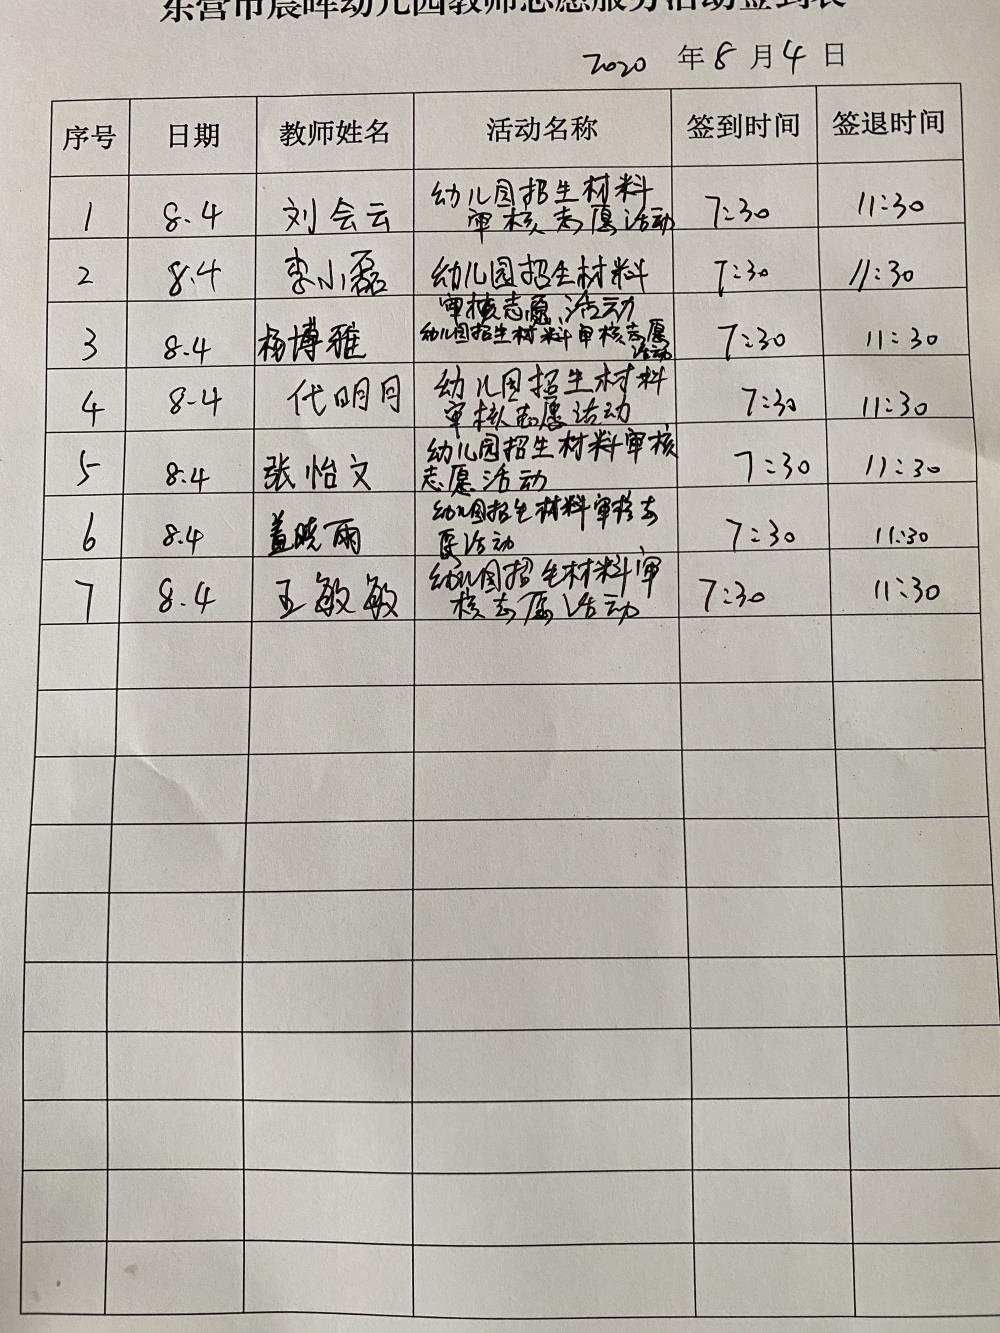 东营市晨晖幼儿园教师志愿服务活动签到表
2020 年 8 月 4 日
序号 日期 教师姓名 活动名称 签到时间 签退时间
1 8.4 刘会云 幼儿园招生材料 7:30 11:30
审核志愿活动
2 8.4 李小磊 幼儿园招生材料 7:30 11:30
审核志愿活动
3 8.4 杨博雅 幼儿园招生材料审核志愿 7:30 11:30
活动
4 8.4 代明月 幼儿园招生材料 7:30 11:30
审核志愿活动
5 8.4 张怡文 幼儿园招生材料审核 7:30 11:30
志愿活动
6 8.4 盖晓雨 幼儿园招生材料审核志 7:30 11:30
愿活动
7 8.4 王敏敏 幼儿园招生材料审 7:30 11:30
核志愿活动